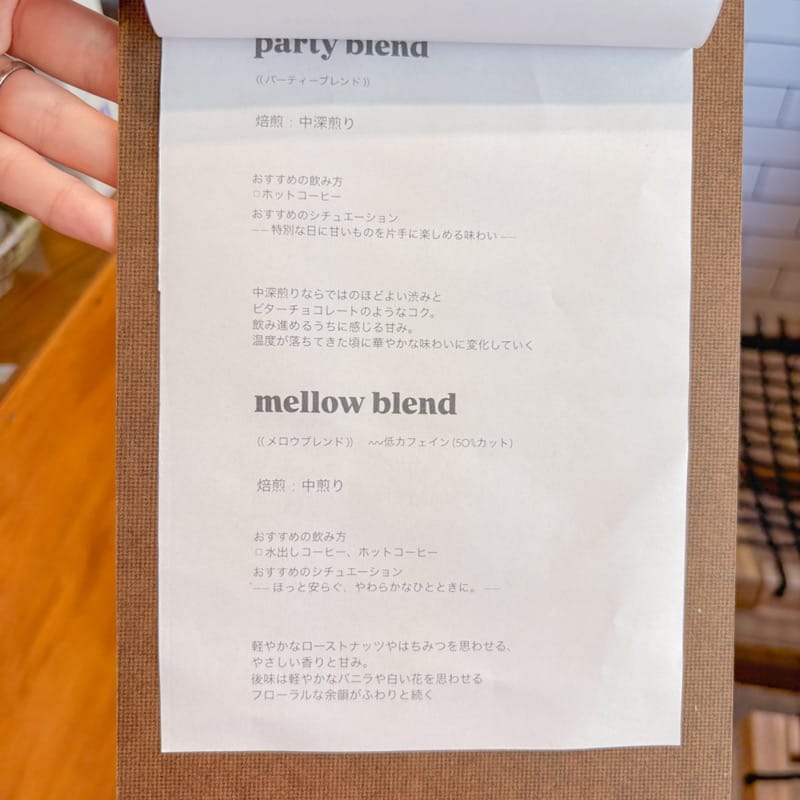 party blend
(( パーティーブレンド ))
焙煎 : 中深煎り
おすすめの飲み方
□ ホットコーヒー
おすすめのシチュエーション
—— 特別な日に甘いものを片手に楽しめる味わい ——
中深煎りならではのほどよい渋みと
ビターチョコレートのようなコク。
飲み進めるうちに感じる甘み。
温度が落ちてきた頃に華やかな味わいに変化していく
mellow blend
(( メロウブレンド )) 〰低カフェイン (50%カット)
焙煎 : 中煎り
おすすめの飲み方
□ 水出しコーヒー、ホットコーヒー
おすすめのシチュエーション
—— ほっと安らぐ、やわらかなひとときに。 ——
軽やかなローストナッツやはちみつを思わせる、
やさしい香りと甘み。
後味は軽やかなバニラや白い花を思わせる
フローラルな余韻がふわりと続く